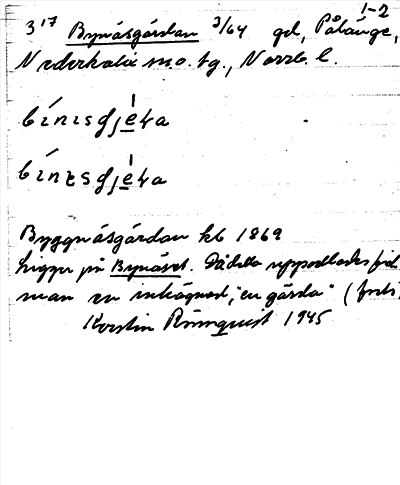 1-2
3¹⁷ Bynäsgårdan 3/64 gd, Pålänge,
Nederkalix sn o. tg., Norrb. l.
bínɪsgjeɽa
bínɪsgjeɽa
Byggnäsgårdan kb 1869
Ligger på Bynäset. Då detta uppodlades fick
man en inhägnad, "en gärda" (forts)
Kerstin Rönnquist 1945